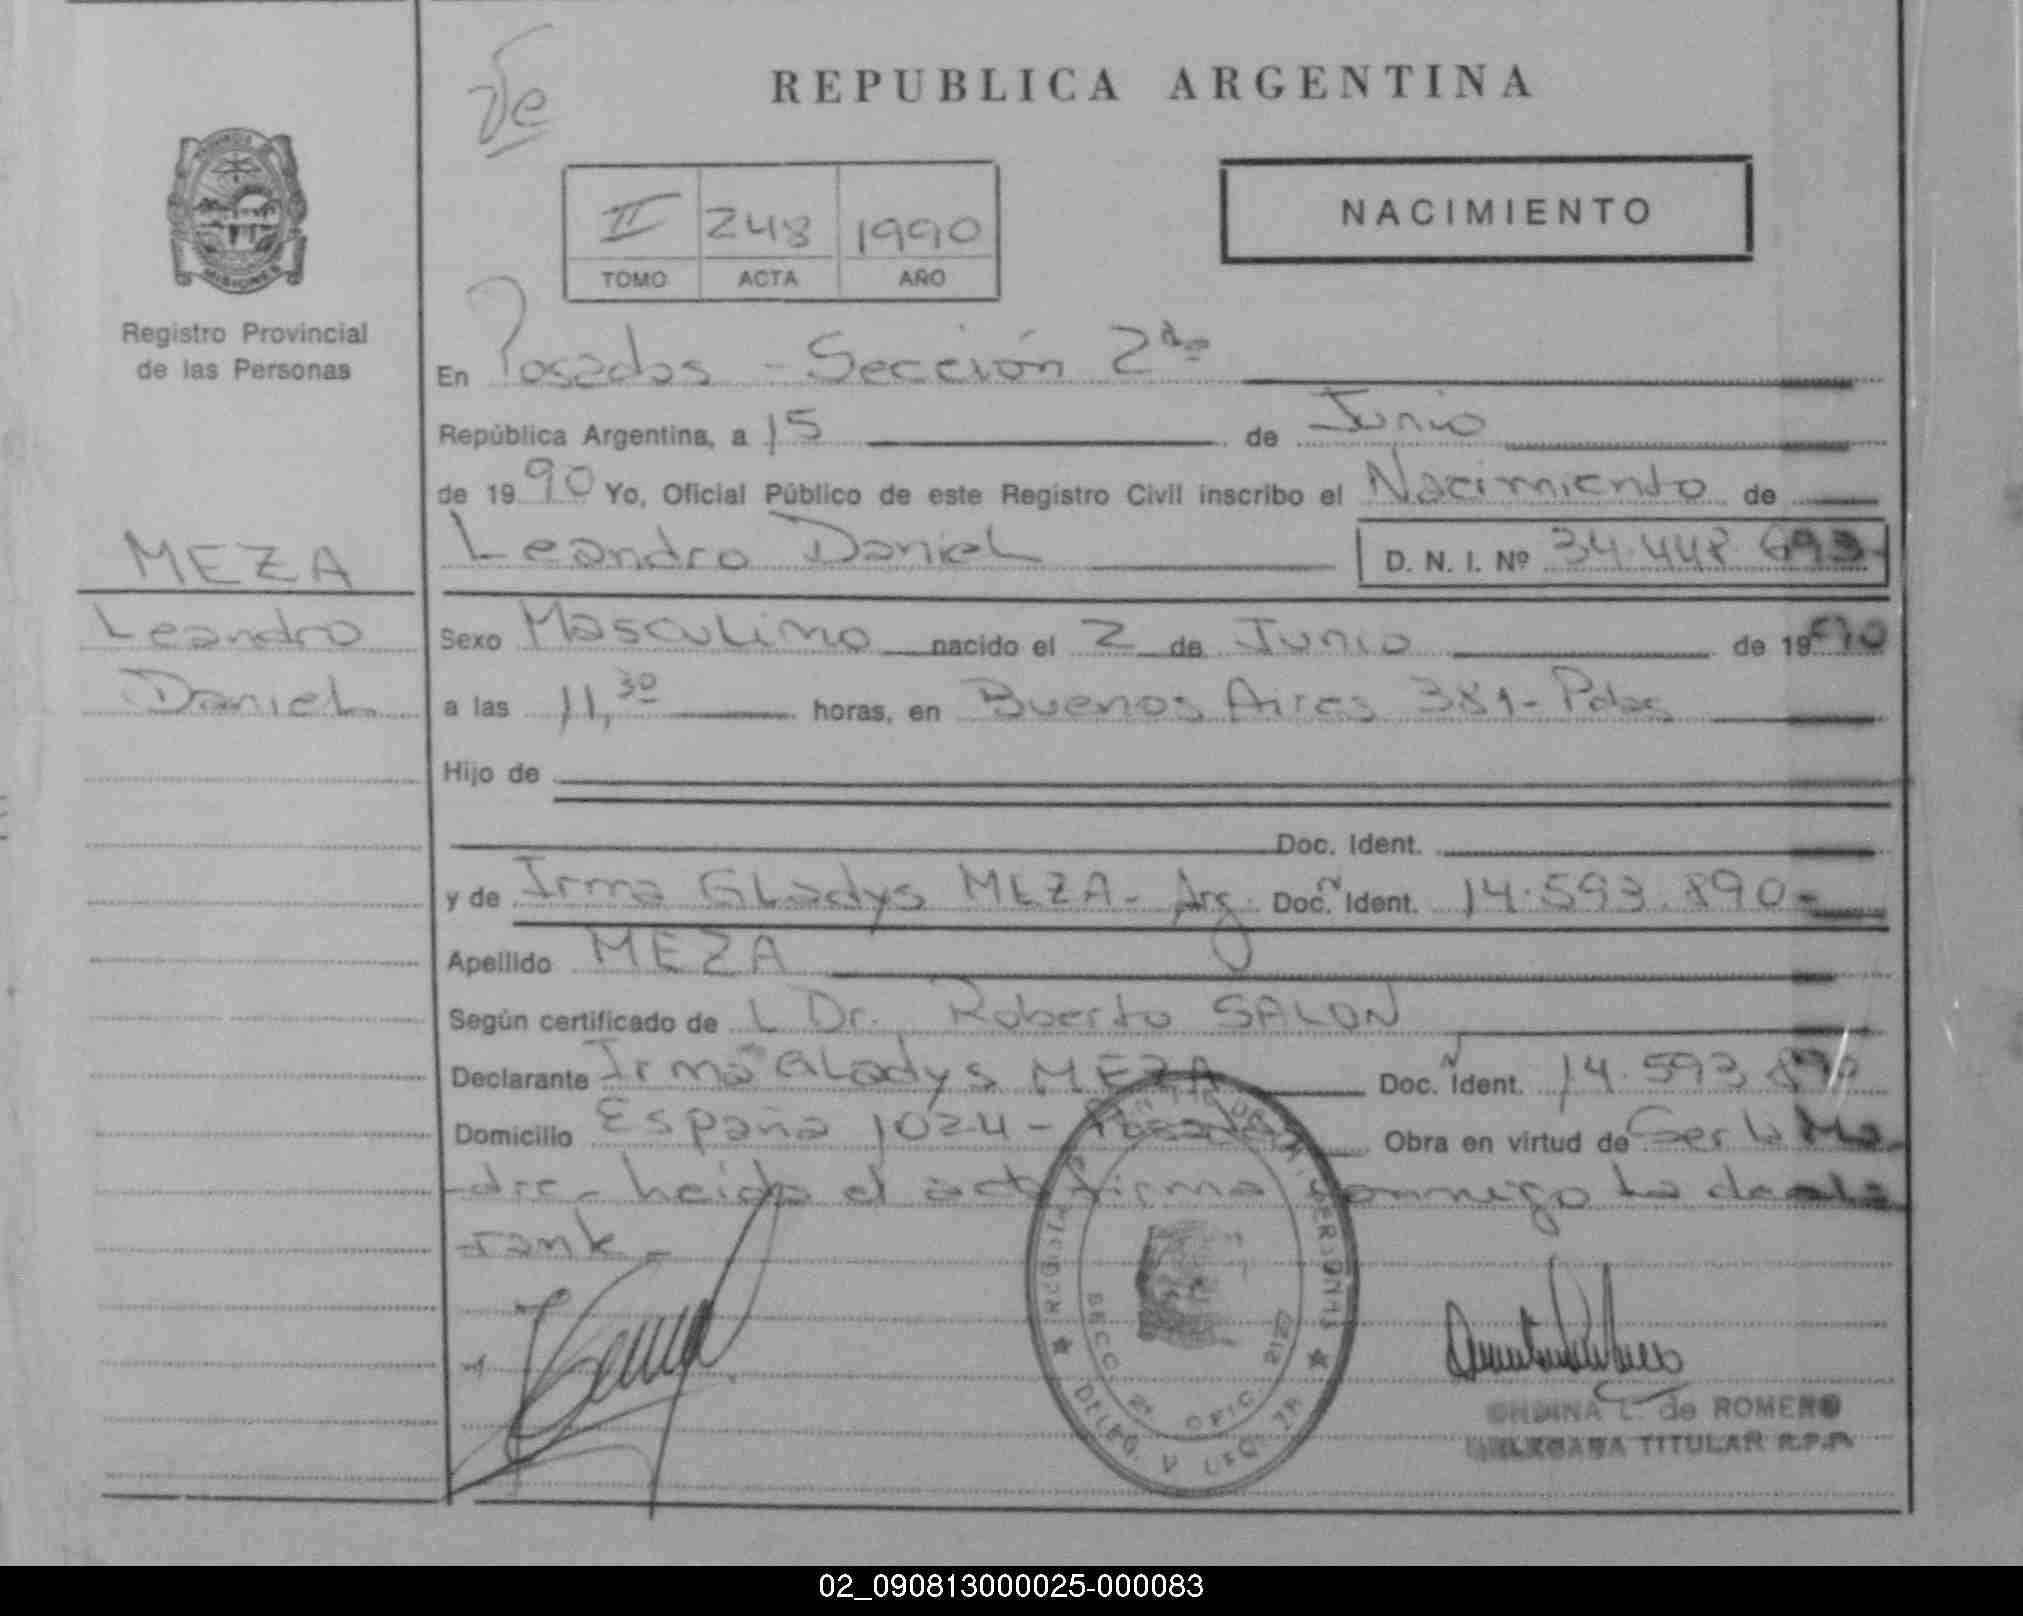 REPUBLICA ARGENTINA
NACIMIENTO
II 248 1990
TOMO ACTA AÑO
MISIONES
Registro Provincial
de las Personas
En Posadas - Sección 2da
República Argentina, a 15 de Junio
de 1990 Yo, Oficial Público de este Registro Civil inscribo el Nacimiento de
Leandro Daniel D. N. I. Nº 34.448.693-
MEZA
Leandro
Daniel
Sexo Masculino nacido el 2 de Junio de 1990
a las 11,30 horas, en Buenos Aires 381 - Pdas
Hijo de
Doc. Ident.
y de Irma GLadys MEZA - Arg. Doc. Ident. 14.593.890-
Apellido MEZA
Según certificado de L Dr. Roberto SALON
Declarante Irma GLadys MEZA Doc. Ident. 14.593.890
Domicilio España 1024 - Posadas Obra en virtud de Ser la Ma
dre - Leida el acta firma conmigo la decla
rante -
SECC. 2ª OFIC.
L. de ROMERO
TITULAR R.P.P.
02_090813000025-000083